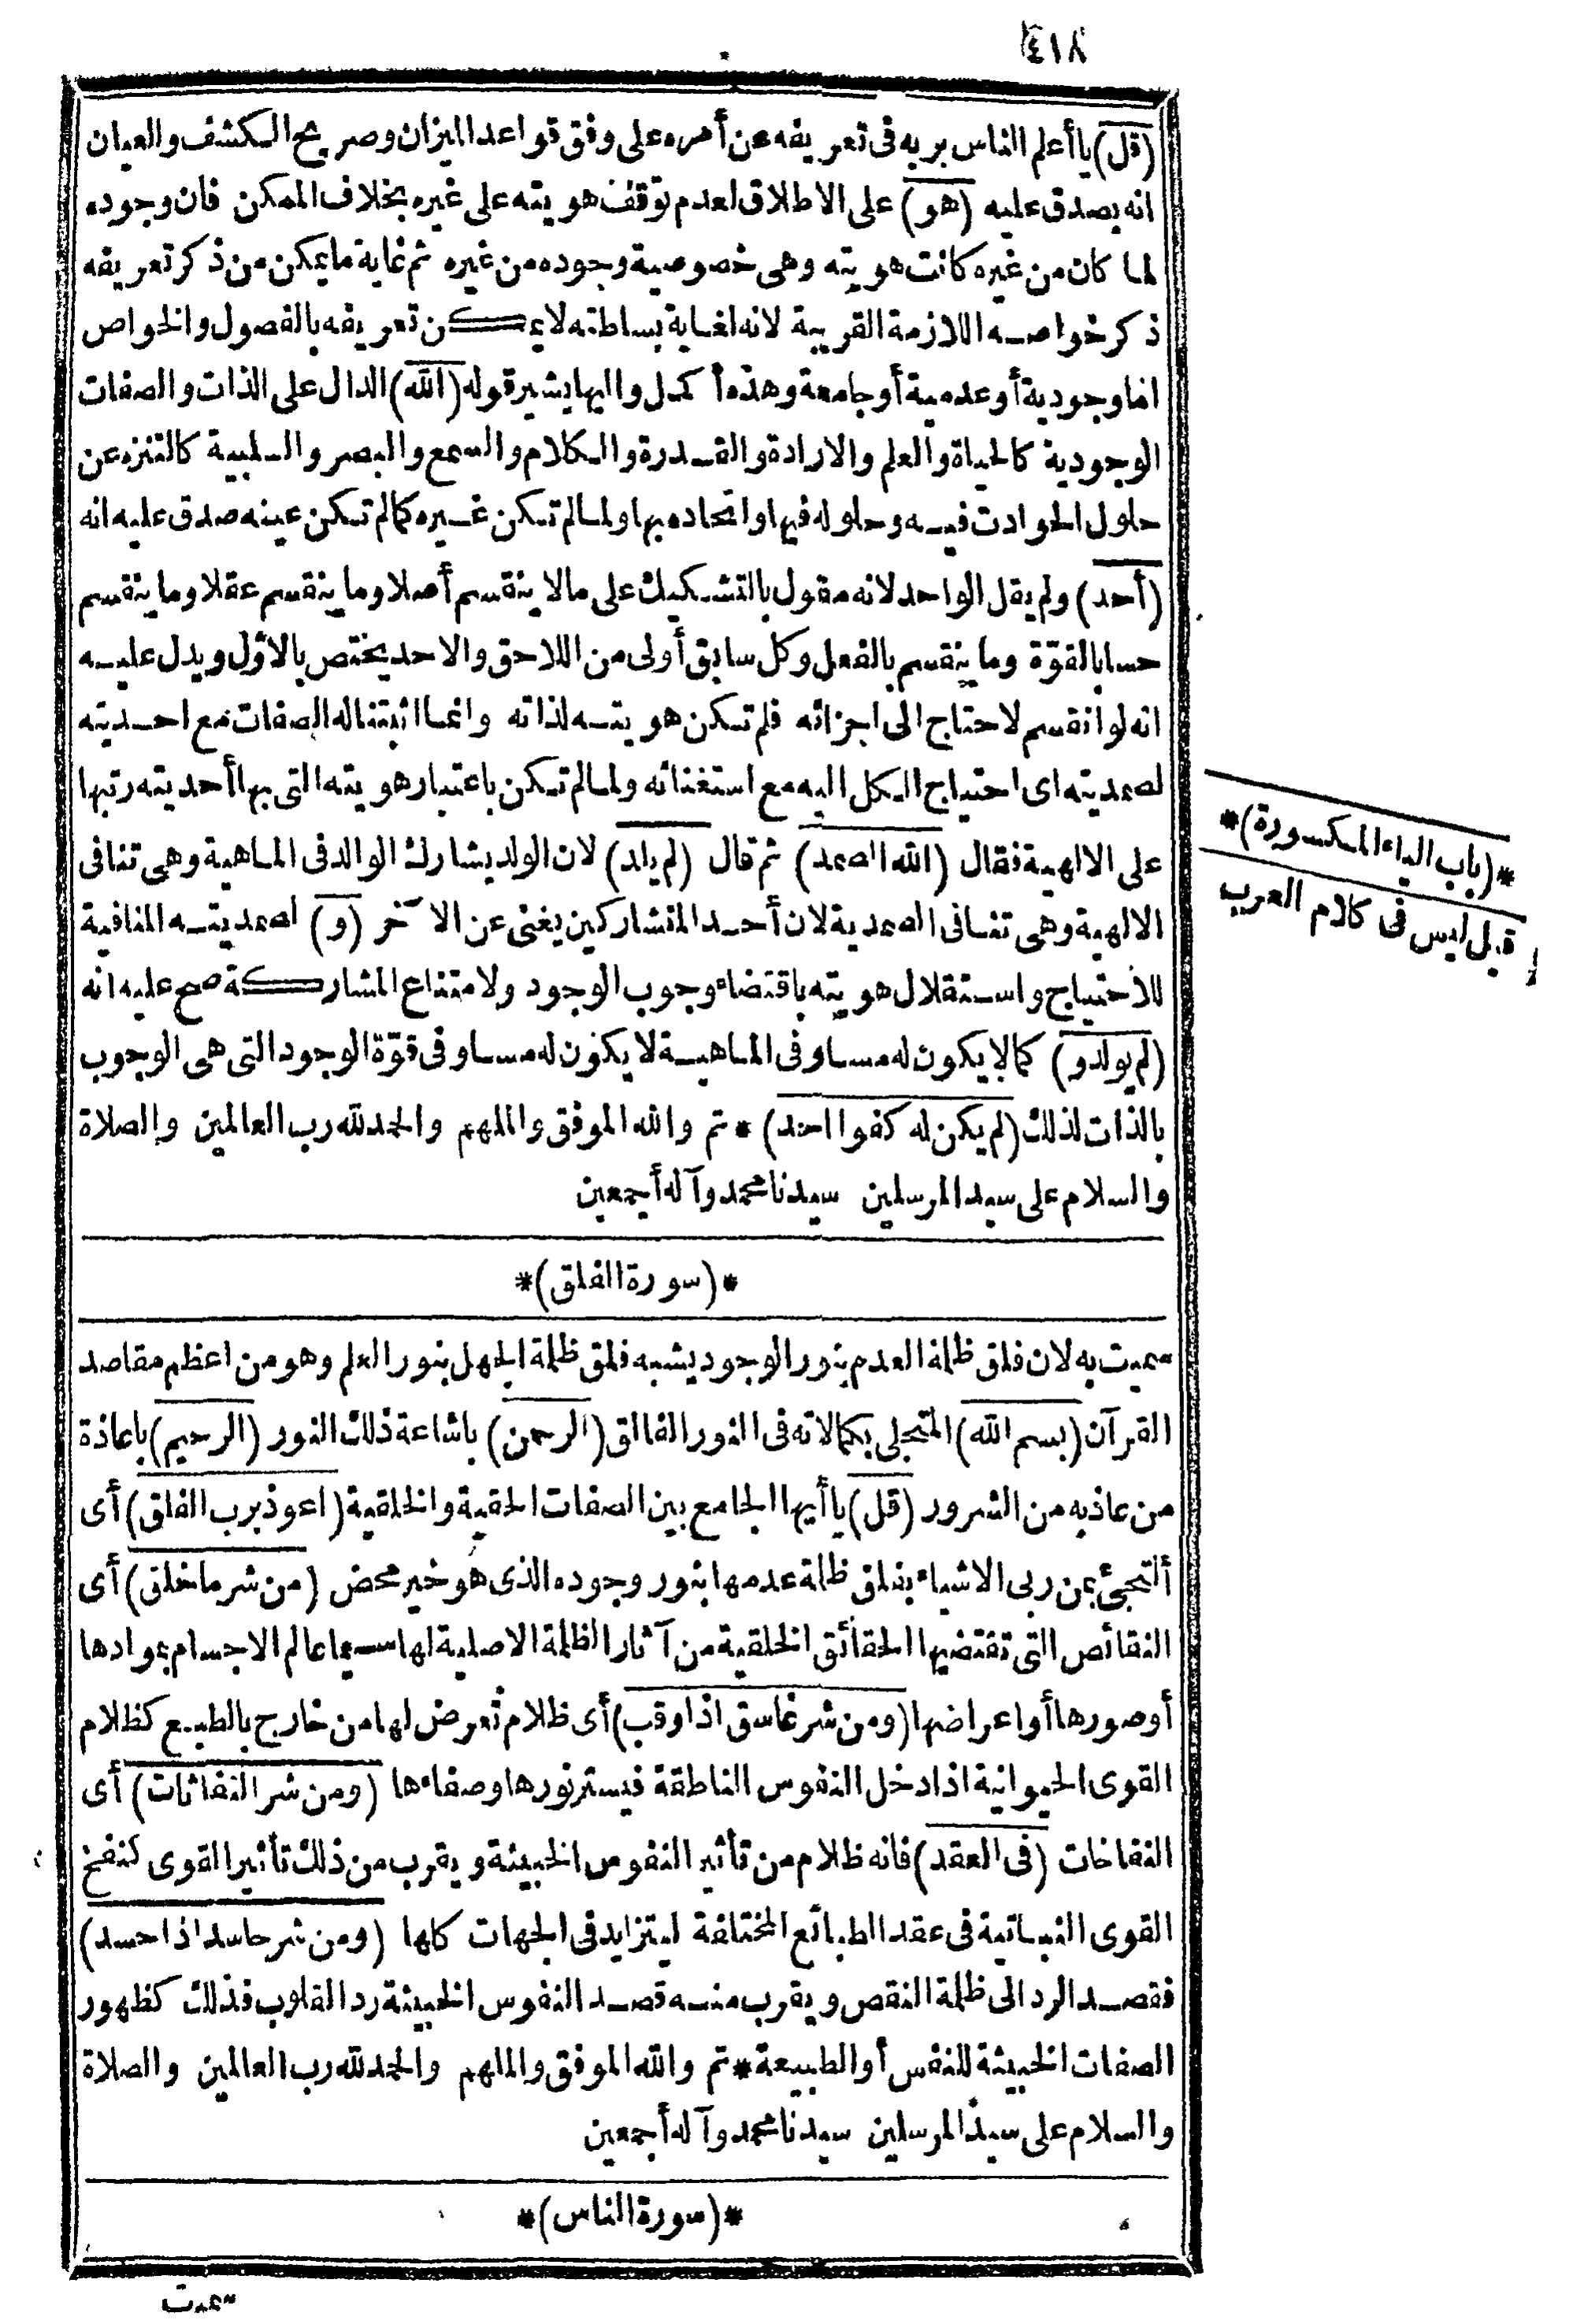 ٤١٨
(قل) يا أعلم الناس بربه فى تعريفه عن أمره على وفق قواعد الميزان وصريح الكشف والعيان
انه يصدق عليه (هو) على الاطلاق لعدم توقف هويته على غيره بخلاف الممكن فان وجوده
لما كان من غيره كانت هويته وهى خصوصية وجوده من غيره ثم غاية ما يمكن من ذكر تعريفه
ذكر خواصه اللازمة القريبة لانه لغاية بساطته لا يمكن تعريفه بالفصول والخواص
اما وجودية أو عدمية أو جامعة وهذه أكمل واليها يشير قوله (الله) الدال على الذات والصفات
الوجودية كالحياة والعلم والارادة والقدرة والكلام والسمع والبصر والسلبية كالتنزه عن
حلول الحوادث فيه وحلوله فيها واتحاده بها ولما لم تكن غيره كما لم تكن عينه صدق عليه انه
(أحد) ولم يقل الواحد لانه مقول بالتشكيك على ما لا ينقسم أصلا وما ينقسم عقلا وما ينقسم
حسا بالقوّة وما ينقسم بالفعل وكل سابق أولى من اللاحق والاحد يختص بالاوّل ويدل عليه
انه لو انقسم لاحتاج الى اجزائه فلم تكن هويته لذاته وانما اثبتنا له الصفات مع احديته
لصمديته اى احتياج الكل اليه مع استغنائه ولما لم تكن باعتبار هويته التى بها أحديته رتبها
على الالهية فقال (الله الصمد) ثم قال (لم يلد) لان الولد يشارك الوالد فى الماهية وهى تنافى
الالهية وهى تنافى الصمدية لان أحد المتشاركين يغنى عن الآخر (و) لصمديته المنافية
للاحتياج واستقلال هويته باقتضاء وجوب الوجود ولامتناع المشاركة صح عليه انه
(لم يولد و) كما لا يكون له مساو فى الماهية لا يكون له مساو فى قوّة الوجود التى هى الوجوب
بالذات لذلك (لم يكن له كفوا احد) * تم والله الموفق والملهم والحمد لله رب العالمين والصلاة
والسلام على سيد المرسلين سيدنا محمد وآله أجمعين
*(سورة الفلق)*
سميت به لان فلق ظلمة العدم بنور الوجود يشبه فلق ظلمة الجهل بنور العلم وهو من اعظم مقاصد
القرآن (بسم الله) المتجلى بكمالاته فى النور الفالق (الرحمن) باشاعة ذلك النور (الرحيم) باعاذة
من عاذ به من الشرور (قل) يا أيها الجامع بين الصفات الحقية والخلقية (اعوذ برب الفلق) أى
ألتجئ بمن ربى الاشياء بفلق ظلمة عدمها بنور وجوده الذى هو خير محض (من شر ما خلق) أى
النقائص التى تقتضيها الحقائق الخلقية من آثار الظلمة الاصلية لها سيما عالم الاجسام بموادها
أو صورها أو اعراضها (ومن شر غاسق اذا وقب) أى ظلام تعرض لها من خارج بالطبع كظلام
القوى الحيوانية اذا دخل النفوس الناطقة فيستر نورها وصفاءها (ومن شر النفاثات) أى
النفاخات (فى العقد) فانه ظلام من تأثير النفوس الخبيثة ويقرب من ذلك تأثير القوى كنفخ
القوى النباتية فى عقد الطبائع المختلفة ليتزايد فى الجهات كلها (ومن شر حاسد اذا حسد)
فقصد الرد الى ظلمة النقص ويقرب منه قصد النفوس الخبيثة رد القلوب فذلك كظهور
الصفات الخبيثة للنفس أو الطبيعة * تم والله الموفق والملهم والحمد لله رب العالمين والصلاة
والسلام على سيد المرسلين سيدنا محمد وآله أجمعين
*(سورة الناس)*
سميت
*(باب الياء المكسورة)*
قيل ليس فى كلام العرب